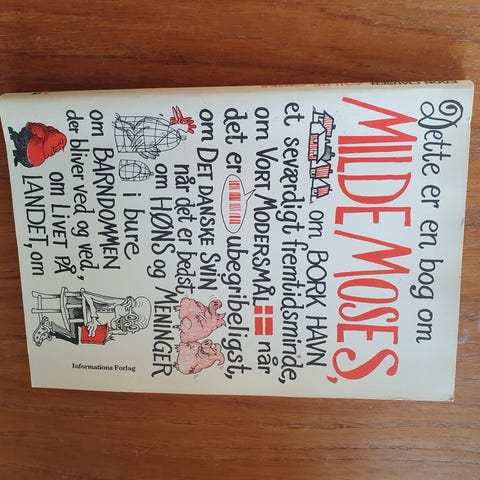 Dette er en bog om
MILDE MOSES,
om BORK HAVN
et seværdigt fremtidsminde,
om VORT MODERSMÅL når
det er ubegribeligst,
om DET DANSKE SVIN
når det er bedst
om HØNS og MENINGER
i bure
om BARNDOMMEN
der bliver ved og ved,
om LIVET PÅ
LANDET, om
Informations Forlag